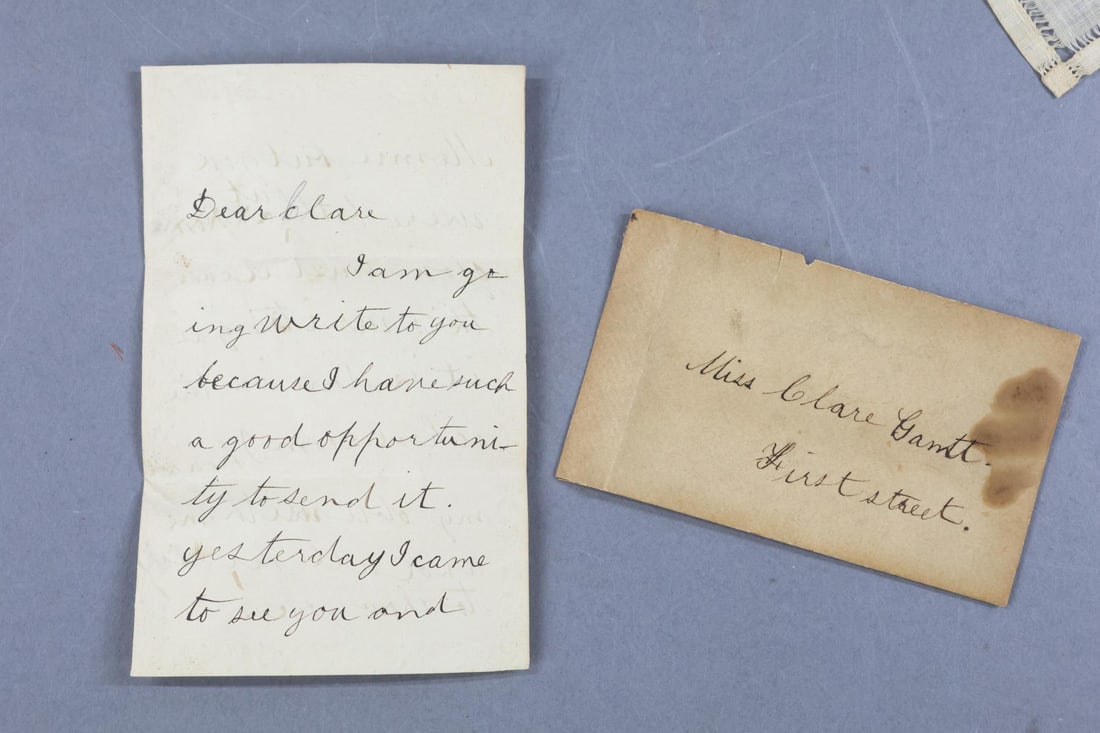 Dear Clare
I am go
ing write to you
because I have such
a good opportuni-
ty to send it.
yesterday I came
to see you and
Miss Clare Gantt.
First street.